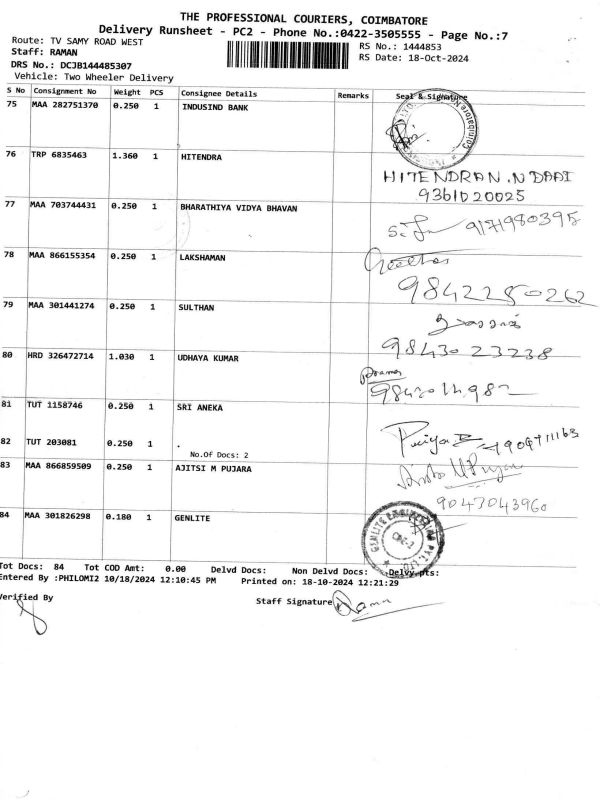 THE PROFESSIONAL COURIERS, COIMBATORE
Delivery Runsheet - PC2 - Phone No.:0422-3505555 - Page No.:7
Route: TV SAMY ROAD WEST
RS No.: 1444853
Staff: RAMAN
RS Date: 18-Oct-2024
DRS No.: DCJB144485307
Vehicle: Two Wheeler Delivery
S No Consignment No Weight PCS Consignee Details Remarks Seal & Signature
75 MAA 282751370 0.250 1 INDUSIND BANK
Coimbatore
76 TRP 6835463 1.360 1 HITENDRA
HITENDRAN.N
9361020025
77 MAA 703744431 0.250 1 BHARATHIYA VIDYA BHAVAN
9171980395
78 MAA 866155354 0.250 1 LAKSHAMAN
9842250262
79 MAA 301441274 0.250 1 SULTHAN
9843023238
80 HRD 326472714 1.030 1 UDHAYA KUMAR
81 TUT 1158746 0.250 1 SRI ANEKA
Priya
82 TUT 203081 0.250 1 .
No.Of Docs: 2
83 MAA 866859509 0.250 1 AJITSI M PUJARA
9047043960
84 MAA 301826298 0.180 1 GENLITE
GENLITE ENGINEERING PVT. LTD.
CBE-2
Tot Docs: 84 Tot COD Amt: 0.00 Delvd Docs: Non Delvd Docs: Delvy.pts:
Entered By :PHILOMI2 10/18/2024 12:10:45 PM Printed on: 18-10-2024 12:21:29
Verified By
Staff Signature Raman